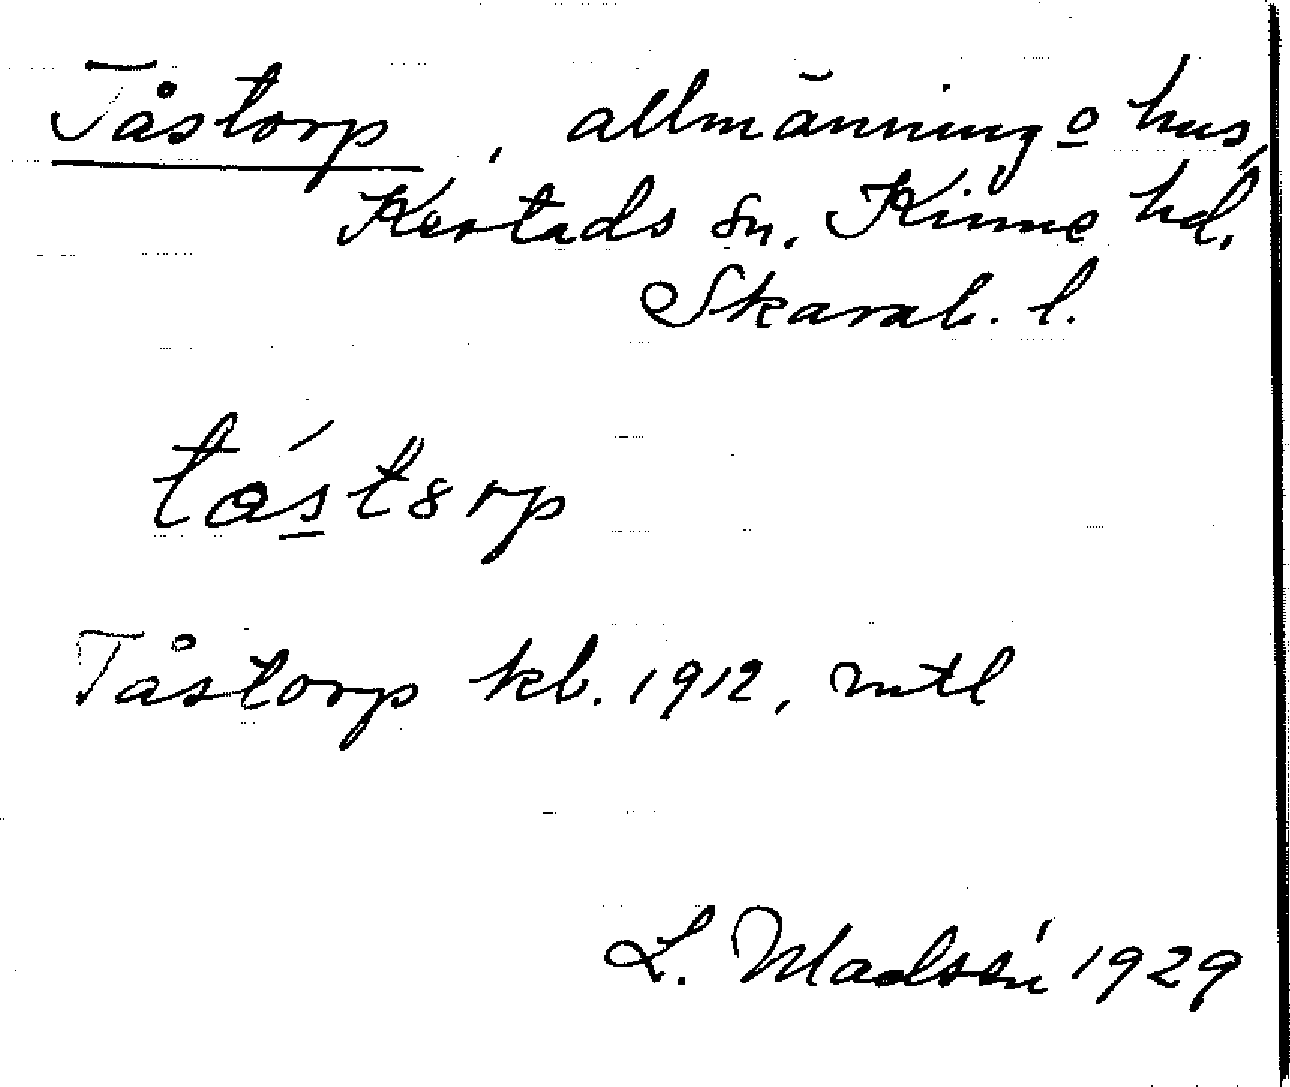 Tåstorp, allmänning o hus,
Kestads sn. Kinne hd.
Skarab. l.
tás̲tɜrp
Tåstorp kb. 1912, mtl
L. Madsén 1929